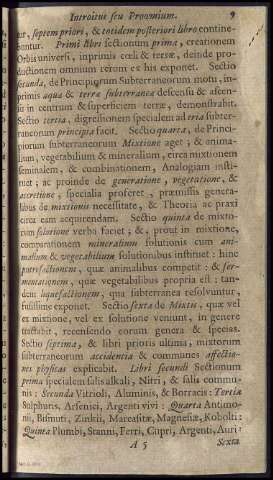 Introitus seu Prooemium. 9
tur, septem priori, & totidem posteriori libro contine-
buntur. Primi libri sectionum prima, creationem
Orbis universi, inprimis cœli & terræ, deinde pro-
ductionem omnium rerum ex his exponet. Sectio
secunda, de Principiorum Subterraneorum motu, in-
primis aqua & terræ subterraneæ descensu & ascen-
su in centrum & superficiem terræ, demonstrabit.
Sectio tertia, digressionem specialem ad tria subter-
raneorum principia facit. Sectio quarta, de Princi-
piorum subterraneorum Mixtione aget; & anima-
lium, vegetabilium & mineralium, circa mixtionem
seminalem, & combinationem, Analogiam insti-
tuet; ac proinde de generatione, vegetatione, &
accretione, specialia proferet, præmissis genera-
libus de mixtionis necessitate, & Theoria ac praxi
circa eam acquirendam. Sectio quinta de mixto-
rum solutione verba faciet; &, prout in mixtione,
comparationem mineralium solutionis cum ani-
malium & vegetabilium solutionibus instituet: hinc
putrefactionem, quæ animalibus competit: & fer-
mentationem, quæ vegetabilibus propria est: tan-
dem liquefactionem, qua subterranea resolvuntur,
fusissime exponet. Sectio sexta de Mistis, quæ vel
ex mixtione, vel ex solutione veniunt, in genere
tractabit, recensendo eorum genera & species.
Sectio septima, & libri prioris ultima, mixtorum
subterraneorum accidentia & communes affectio-
nes physicas explicabit. Libri secundi Sectionum
prima specialem salis alkali, Nitri, & salis commu-
nis: Secunda Vitrioli, Aluminis, & Borracis: Tertia
Sulphuris, Arsenici, Argenti vivi: Quarta Antimo-
nii, Bismuti, Zinckii, Marcasitæ, Magnesiæ, Kobolti:
Quinta Plumbi, Stanni, Ferri, Cupri, Argenti, Auri:
A 5 Sexta